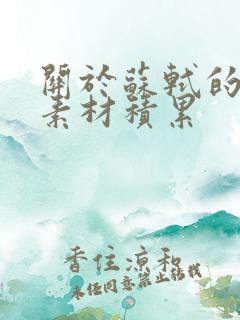 關於蘇軾的
素材積累
香住涼和
未经同意禁止转载